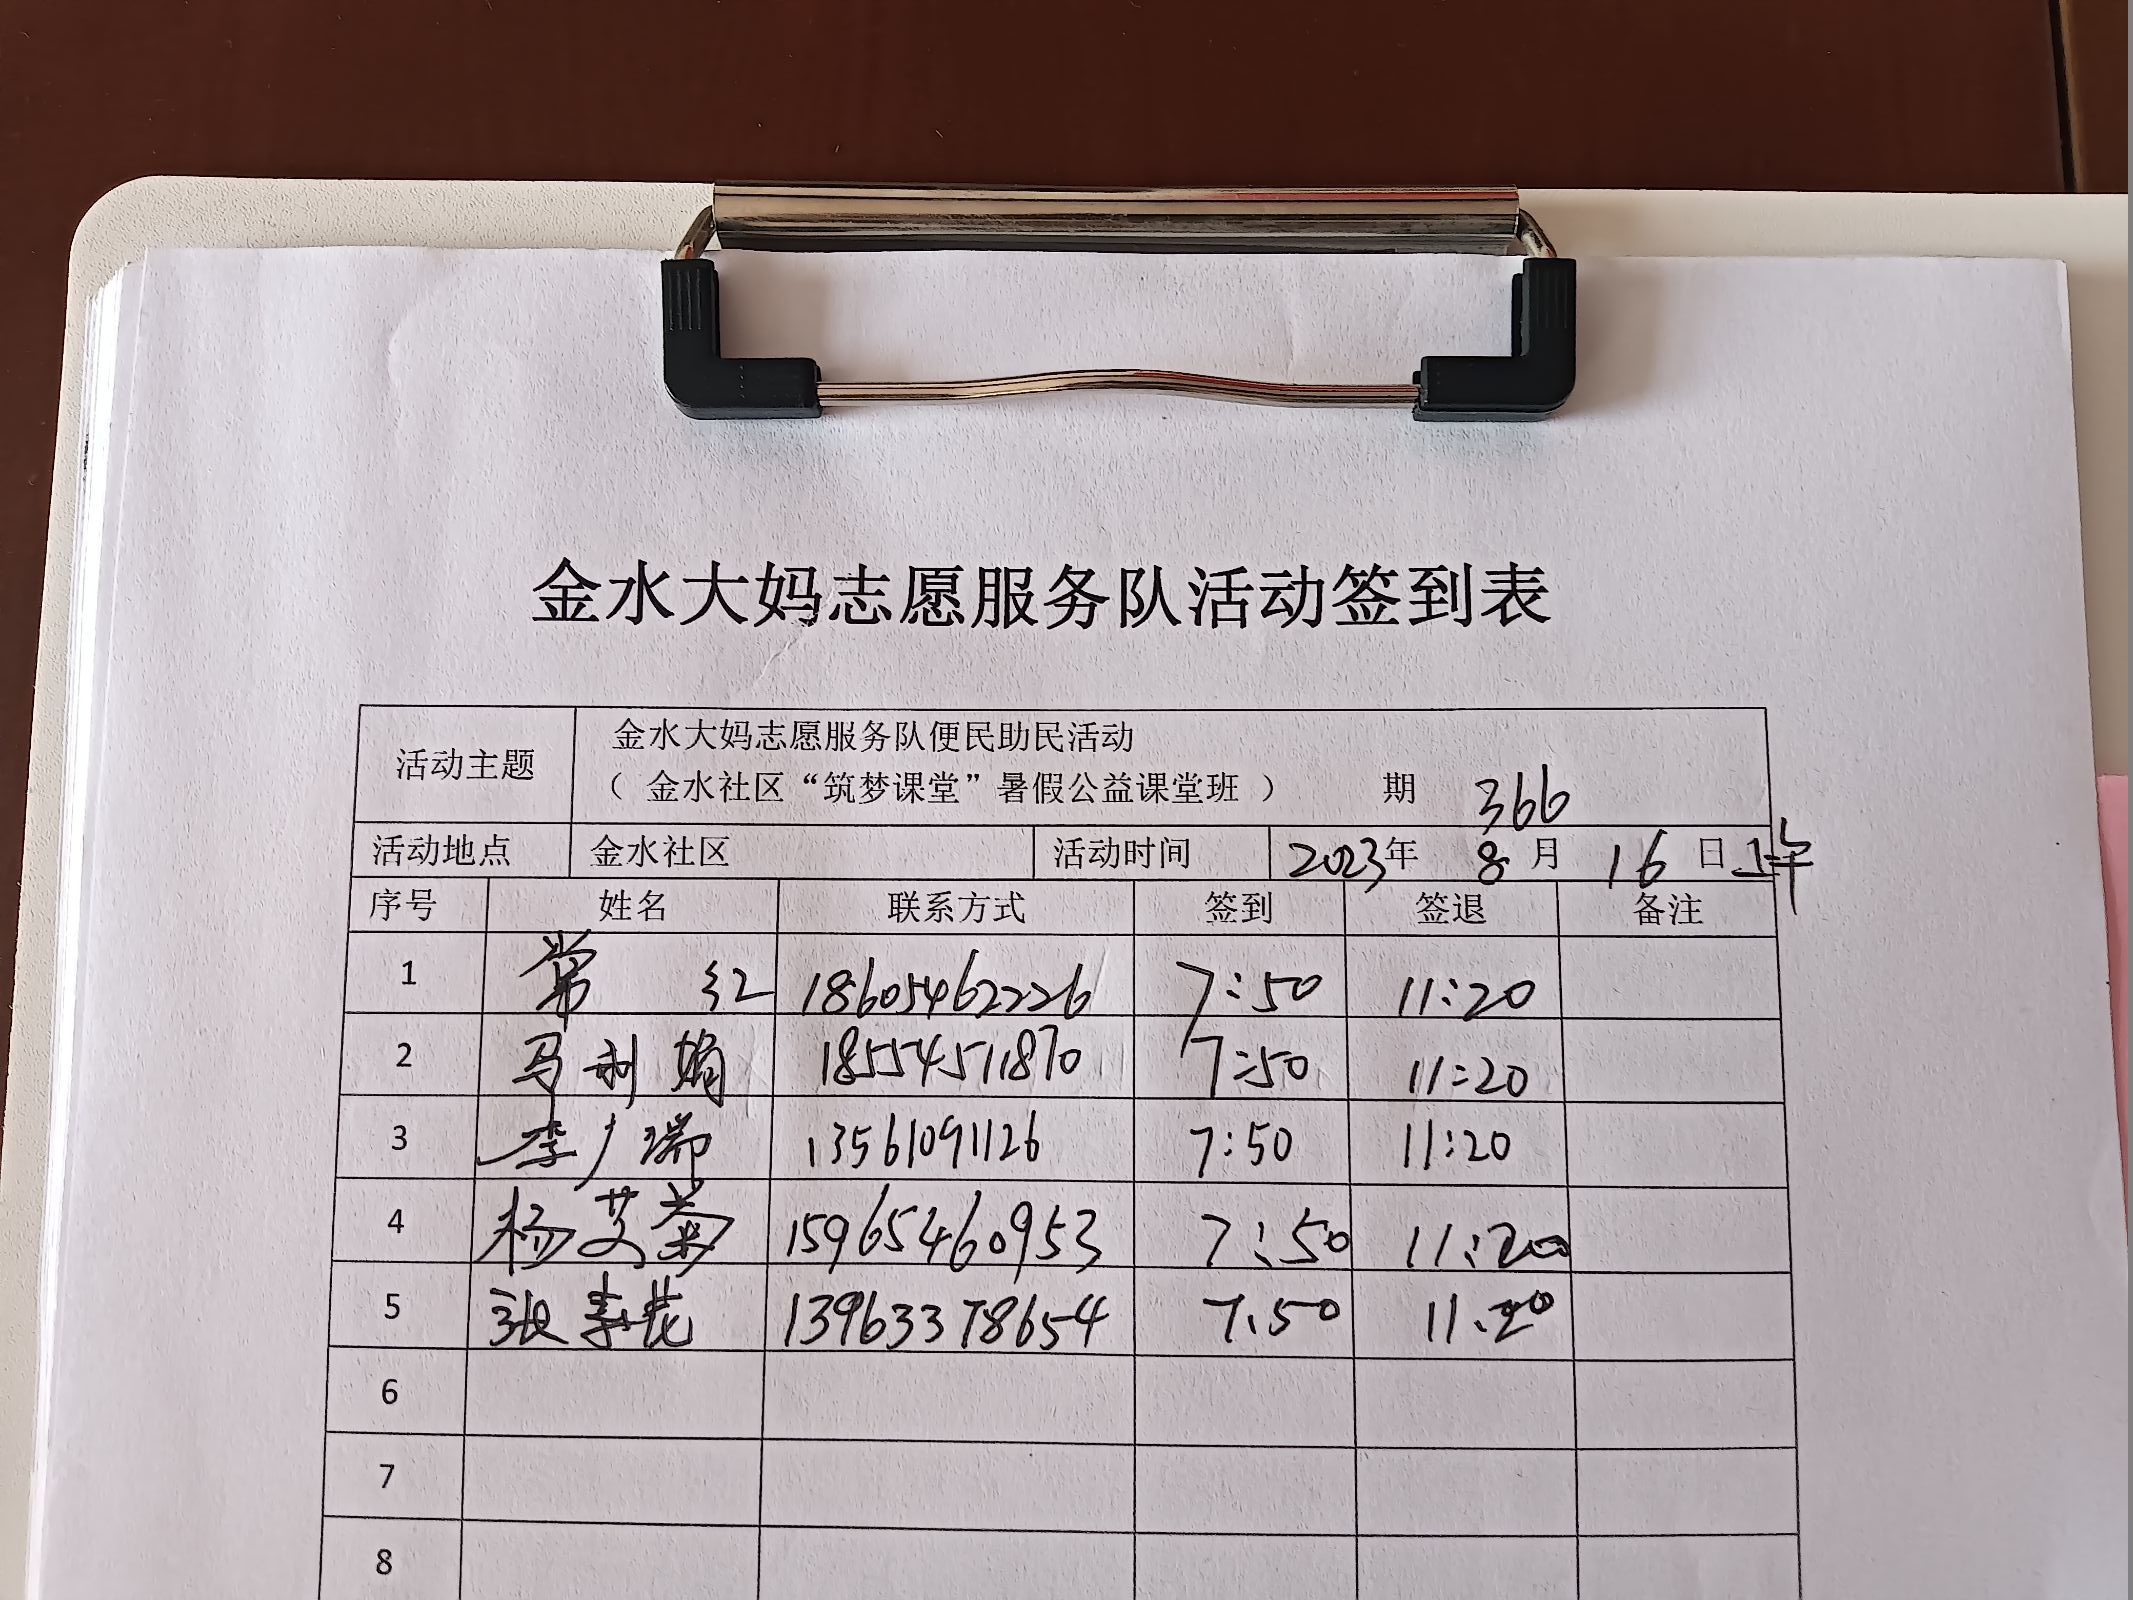 金水大妈志愿服务队活动签到表
活动主题
金水大妈志愿服务队便民助民活动
（ 金水社区“筑梦课堂”暑假公益课堂班 ） 期 366
活动地点 金水社区 活动时间 2023年 8月 16日上午
序号 姓名 联系方式 签到 签退 备注
1 常 红 18605462226 7:50 11:20
2 马利娟 18554511870 7:50 11:20
3 李广瑞 13561091126 7:50 11:20
4 杨艾菊 15965460953 7:50 11:20
5 张 花 13963378654 7.50 11.20
6
7
8